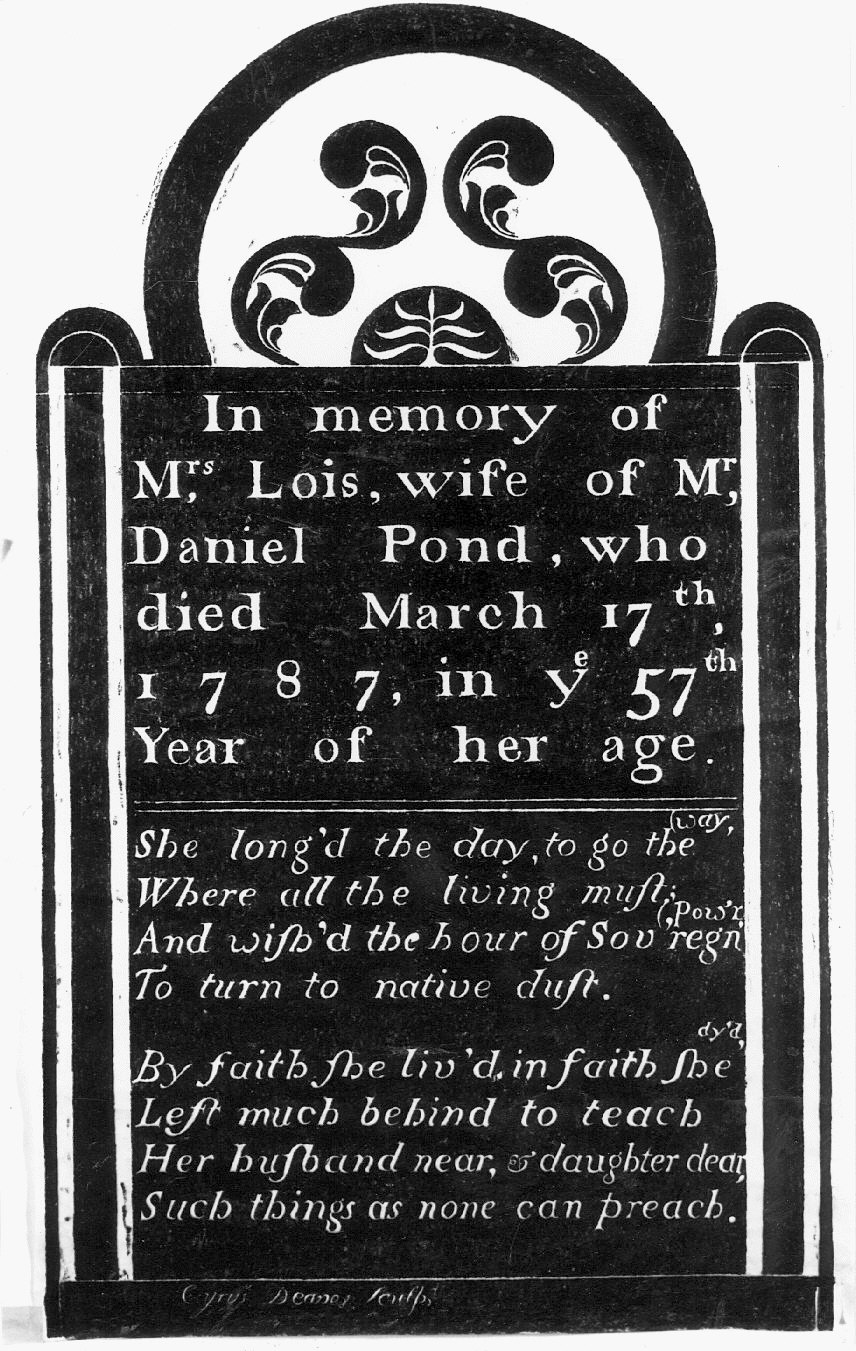 In memory of
Mrs, Lois, wife of Mr,
Daniel Pond, who
died March 17th,
1787, in ye 57th
Year of her age.
She long'd the day, to go the (way,
Where all the living muſt;
And wiſh'd the hour of Sov'regn (Pow'r,
To turn to native duſt.
By faith ſhe liv'd, in faith ſhe dy'd,
Left much behind to teach
Her huſband near, & daughter dear,
Such things as none can preach.
Cyrus Deane, sculpt